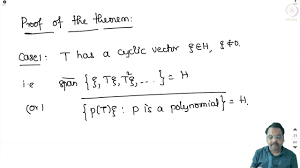 Proof of the theorem:
Case1: T has a cyclic vector ξ∈H, ξ≠0.
i.e span {ξ, Tξ, T²ξ, ...} = H
(or) {p(T)ξ : p is a polynomial} = H.